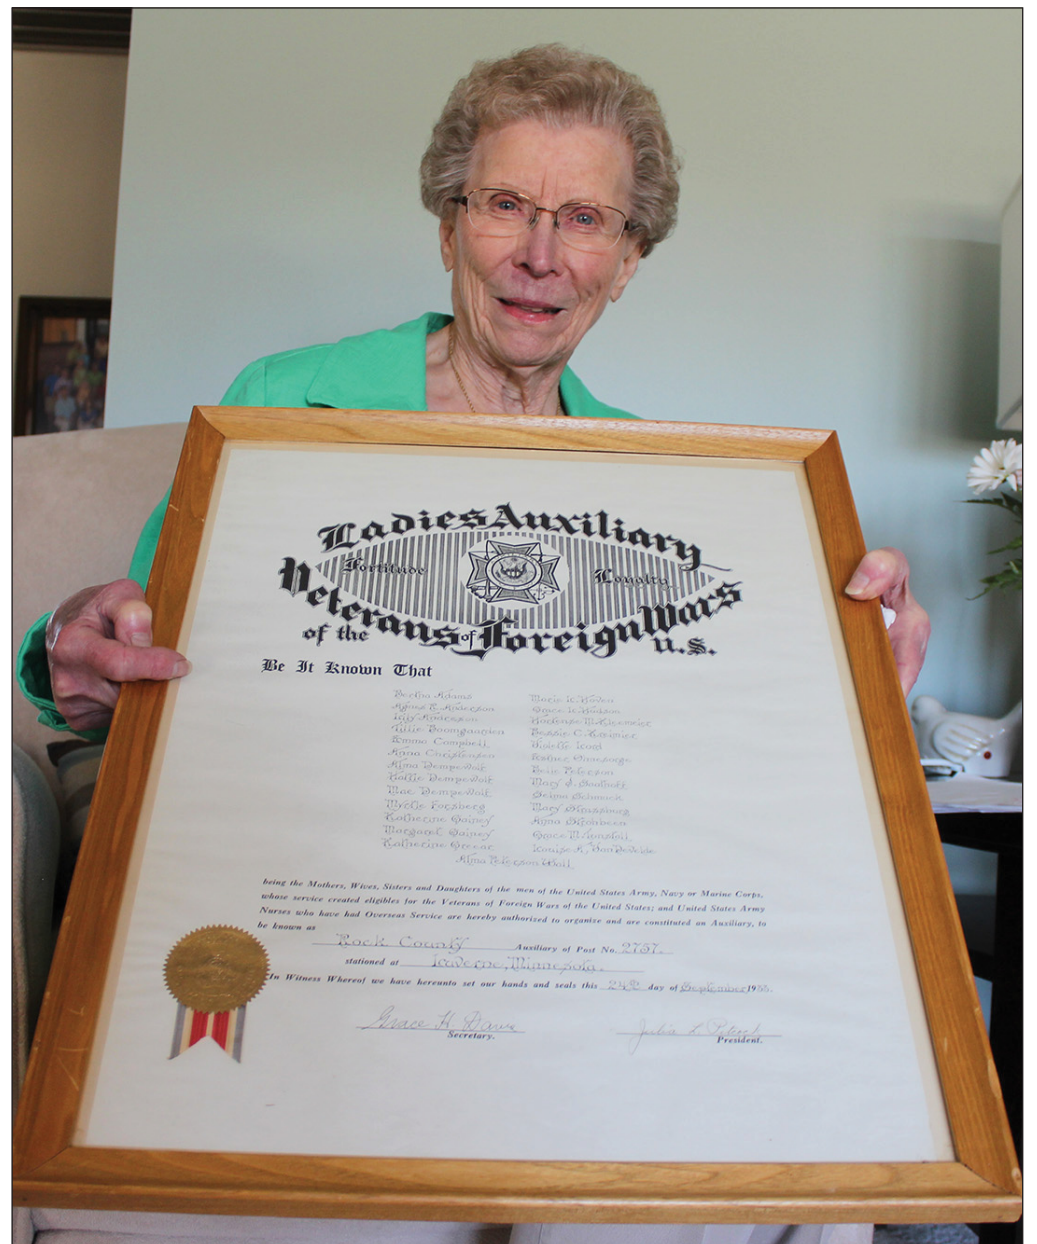 Ladies Auxiliary
Fortitude Loyalty
of the Veterans of Foreign Wars U.S.
Be It Known That
Bertha Adams
Agnes R. Anderson
Lily Anderson
Tillie Baumgarden
Emma Campbell
Anna Christensen
Alma Dempewolf
Hallie Dempewolf
Mae Dempewolf
Myrtle Forsberg
Katherine Gainey
Margaret Gainey
Katherine Greene
Marie K. Hoven
Grace K. Hudson
Hortense M.
Bessie C.
Lord
Peterson
Mary S.
Selma Schmuck
Mary
Alma
Grace M.
Louise A.
Alma Peterson
being the Mothers, Wives, Sisters and Daughters of the men of the United States Army, Navy or Marine Corps,
whose service created eligibles for the Veterans of Foreign Wars of the United States; and United States Army
Nurses who have had Overseas Service are hereby authorized to organize and are constituted an Auxiliary, to
be known as
Rock County Auxiliary of Post No. 2757.
stationed at Luverne, Minnesota.
In Witness Whereof we have hereunto set our hands and seals this day of September 19
Grace H. Davis Julia L.
Secretary. President.